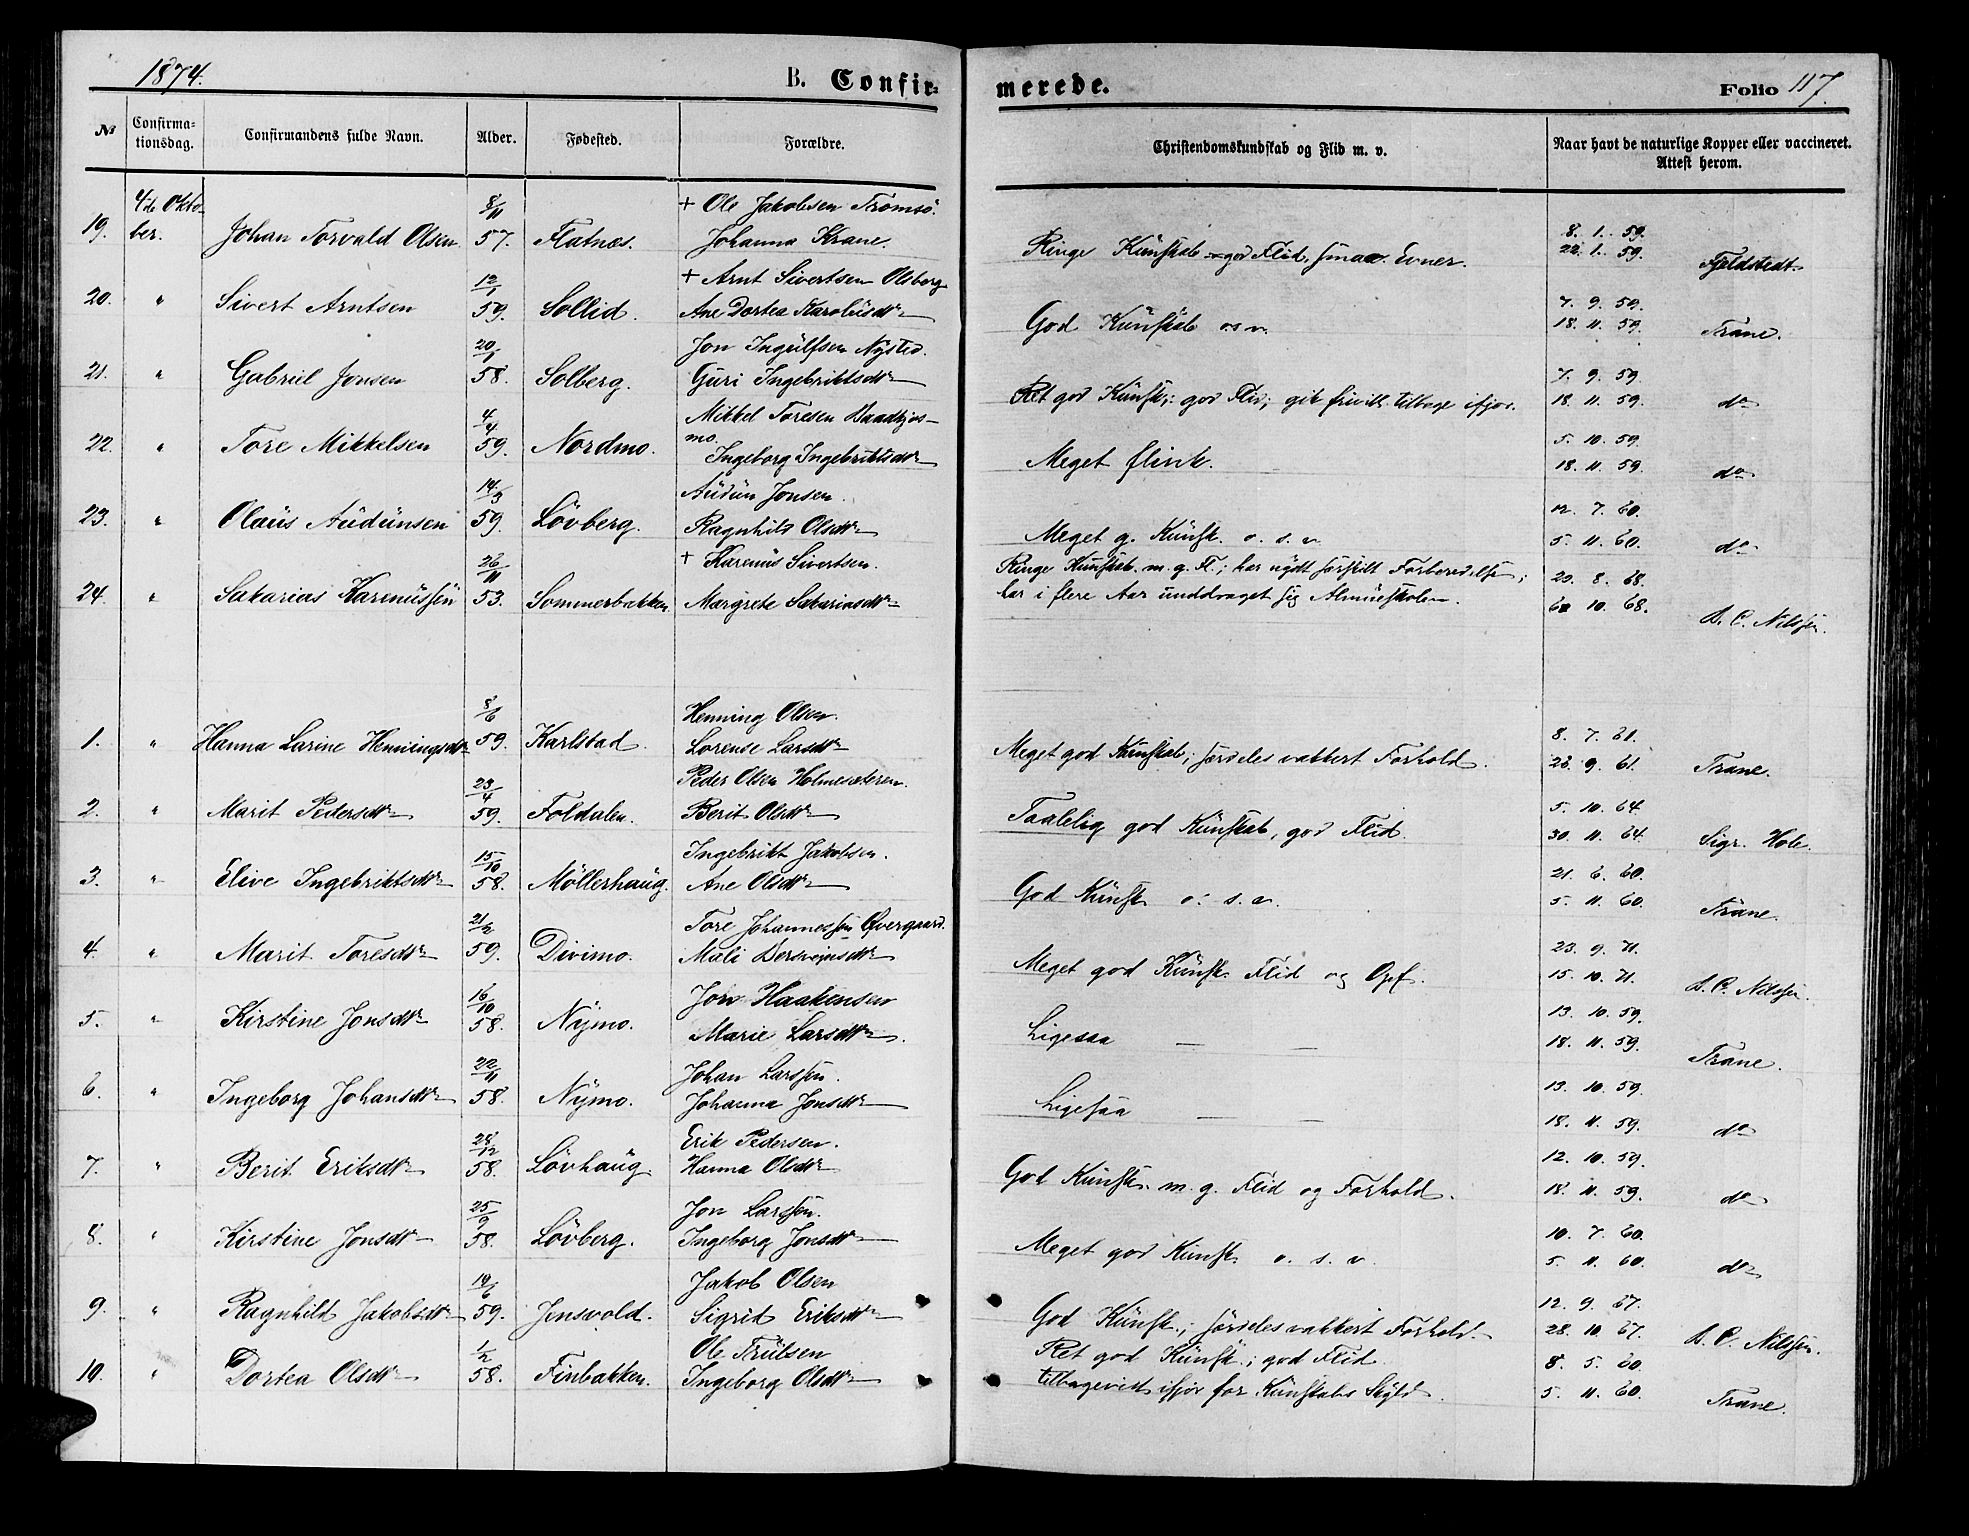 1874.
B. Confir-
merede.
Folio 117.
No
Confirma-
tionsdag.
Confirmandens fulde Navn.
Alder.
Fødested.
Forældre.
Christendomskundskab og Flid m. v.
Naar havt de naturlige Kopper eller vaccineret.
Attest herom.
19. 4de Okto-
ber. Johan Torvald Olsen 8/11 57. Flatnæs. + Ole Jakobsen Tromsö.
Johanna Krane. Ringe Kunskab god Flid, smaa Evner. 8. 1. 59.
22. 1. 59. Fjeldstedt
20. " Sivert Arntsen 12/1 59. Sollid. + Arnt Sivertsen Olsborg
Ane Dortea Karolusdtr God Kunskab osv. 7. 9. 59.
18. 11. 59. Trane.
21. " Gabriel Jonsen 20/1 58. Solberg. Jon Ingulfsen Nysted.
Guri Ingebriktsdtr Ret god Kunsk.; god Flid; gik frivilt. tilbage ifjor. 7. 9. 59.
18. 11. 59. do
22. " Tore Mikkelsen 4/4 59. Nordmo. Mikkel Toresen
mo.
Ingeborg Ingebriktsdtr Meget flink. 5. 10. 59.
18. 11. 59. do
23. " Olaus Audunsen 14/3 59. Lövberg. Audun Jonsen.
Ragnhild Olsdtr Meget g. Kunsk. o. s. v. 12. 7. 60.
5. 11. 60. do
24. " Sakarias Karenussen 26/11 53. Sommerbakken. + Karenus Sivertsen.
Margrete Sakariasdtr Ringe Kunskab. m. g. Fl.; har nydt særskilt Forberedelse;
har i flere Aar unddraget sig Almueskolen. 20. 8. 68.
10. 68. L. C. Nilssen.
1. " Hanna Larine Henningsdtr 8/6 59. Karlstad. Henning Olsen.
Lorense Larsdtr Meget god Kunskab; særdeles vakkert Forhold. 8. 7. 61.
28. 9. 61. Trane.
2. " Marit Pedersdtr 23/4 59. Foldalen. Peder Olsen Holmesæteren.
Berit Olsdtr Taalelig god Kunskab, god Flid. 5. 10. 64.
30. 11. 64. Sigr. Hole.
3. " Elive Ingebriktsdtr 15/10 58. Möllerhaug. Ingebrikt Jakobsen.
Ane Olsdtr God Kunsk o. s. v. 21. 6. 60.
5. 11. 60. Trane.
4. " Marit Toresdtr 21/2 59. Divimo. Tore Johannessen Øvergaard.
Mali Bersvejnsdtr Meget god Kunsk. Flid og Opf. 23. 9. 71.
15. 10. 71. L. C. Nilssen.
5. " Kirstine Jonsdtr 16/10 58. Nymo. Jon Haakensen
Marie Larsdtr. Ligesaa — — 13. 10. 59.
18. 11. 59. Trane.
6. " Ingeborg Johansdtr 22/11 58. Nymo. Johan Larssen.
Johanna Jonsdtr Ligesaa — — 13. 10. 59.
18. 11. 59. do
7. " Berit Eriksdtr 28/12 58. Lövhaug. Erik Pedersen.
Hanna Olsdtr God Kunsk. m. g. Flid og Forhold. 12. 10. 59.
18. 11. 59. do
8. " Kirstine Jonsdtr 25/9 58. Lövberg. Jon Larssen.
Ingeborg Jonsdtr Meget god Kunsk. o. s. v. 10. 7. 60.
5. 11. 60. do
9. " Ragnhild Jakobsdtr 59. Jensvold. Jakob Olsen
Sigrid Eriksdtr God Kunsk.; særdeles vakkert Forhold. 12. 9. 67.
28. 10. 67. L. C. Nilssen.
10. " Dortea Olsdtr 1/2 58. Finbakken. Ole Trulsen
Ingeborg Olsdtr Ret god Kunsk.; god Flid.
tilbagevist ifjor for Kunskabs Skyld. 8. 5. 60.
5. 11. 60. Trane.